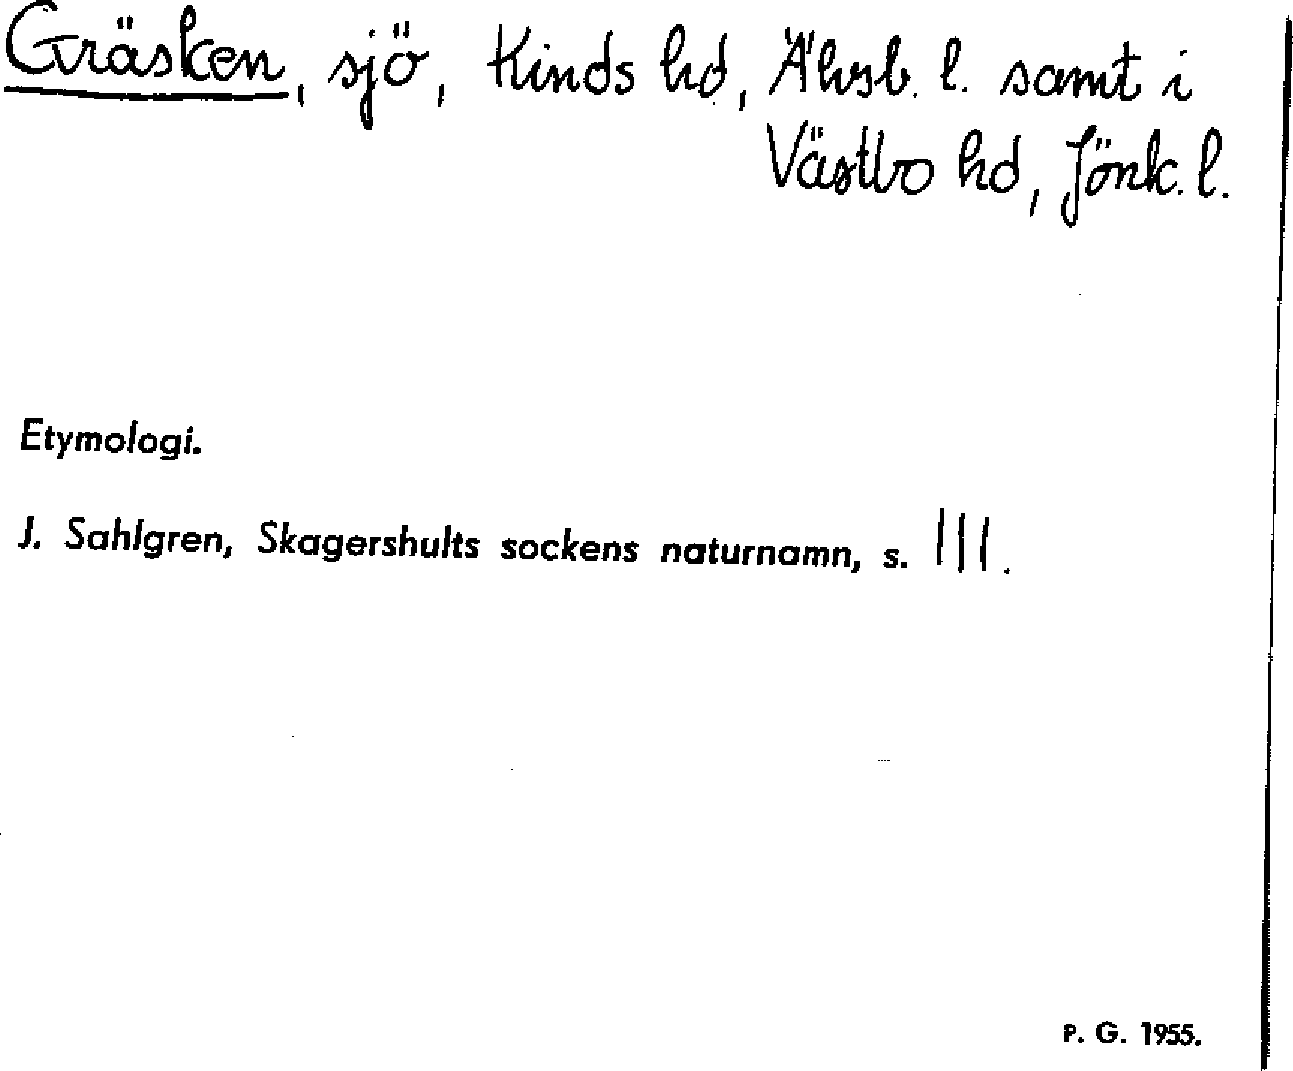 Gräsken, sjö, Kinds hd, Älvsb. l. samt i
Västbo hd, Jönk. l.
Etymologi.
J. Sahlgren, Skagershults sockens naturnamn, s. 111.
P. G. 1955.